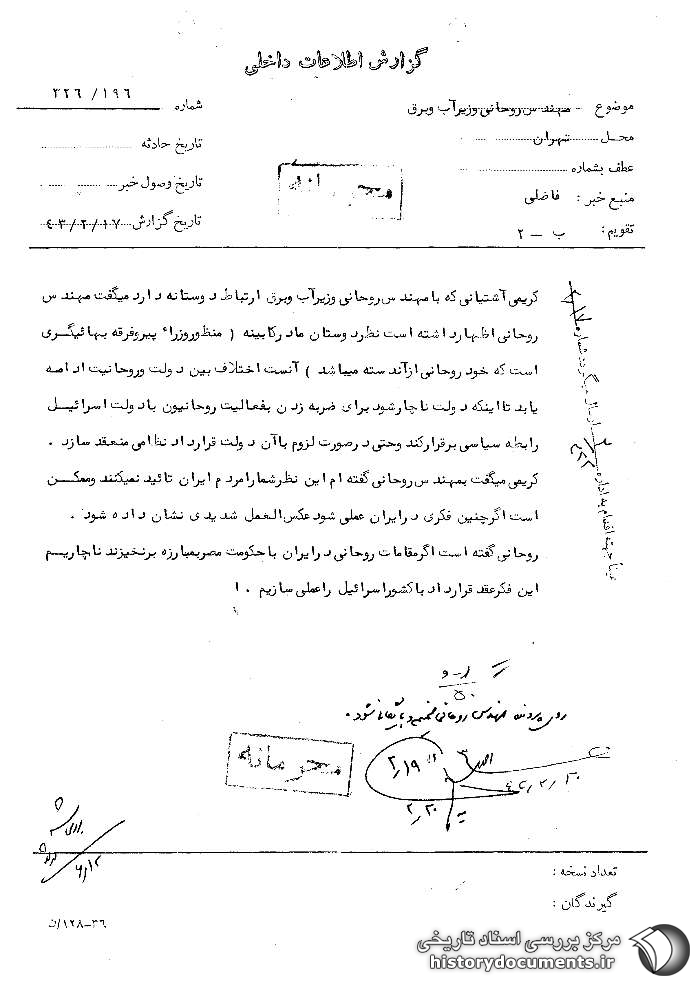 گزارش اطلاعات داخلی
موضوع - مهندس روحانی وزیر آب وبرق
شماره ۳۲۶/۱۹۶
محل تهران
تاریخ حادثه
عطف بشماره
منبع خبر : فاضلی
تاریخ وصول خبر
تقویم : ب - ۲
تاریخ گزارش ۴۳/۲/۱۷
محرمانه
کریمی آشتیانی که با مهندس روحانی وزیر آب وبرق ارتباط دوستانه دارد میگفت مهندس
روحانی اظهار داشته است نظر دوستان ما در کابینه ( منظور وزراء پیرو فرقه بهائیگری
است که خود روحانی از آن دسته میباشد ) آنست اختلاف بین دولت وروحانیت ادامه
یابد تا اینکه دولت ناچار شود برای ضربه زدن بفعالیت روحانیون با دولت اسرائیل
رابطه سیاسی برقرار کند وحتی در صورت لزوم با آن دولت قرارداد نظامی منعقد سازد .
کریمی میگفت بمهندس روحانی گفته ام این نظر شما را مردم ایران تائید نمیکنند وممکن
است اگر چنین فکری در ایران عملی شود عکس العمل شدیدی نشان داده شود .
روحانی گفته است اگر مقامات روحانی در ایران با حکومت مصر بمبارزه برنخیزند ناچاریم
این فکر عقد قرارداد با کشور اسرائیل را عملی سازیم . ا
عیناً جهت اقدام به اداره
ارسال میگردد شماره
روی پرونده مهندس روحانی ضمیمه و بایگانی شود .
محرمانه
۲/۱۹
۲/۲۰
۶/۱۲
تعداد نسخه :
گیرندگان :
۳۶-۱۲۸/ن
مرکز بررسی اسناد تاریخی
historydocuments.ir